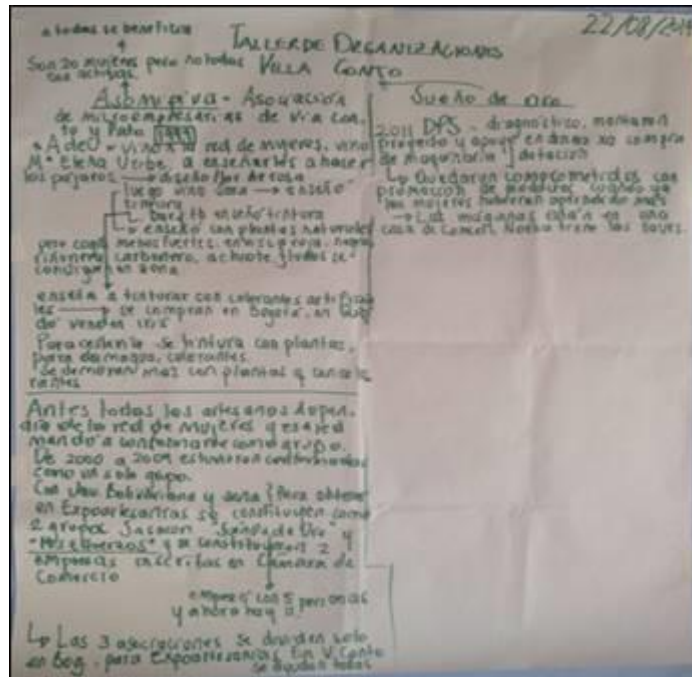 22/08/201
TALLER DE ORGANIZACIONES
VILLA CONTO
a todas se beneficia
Son 20 mujeres pero no todas
son activas.
Asomipva - Asociación
de microempresarias de Villa Con
to y Pato 1999
vino a la red de mujeres, vino
Mª Elena Uribe, a enseñarles a hacer
los pájaros → diseño flor de rosa
luego vino Sena → enseñó
tintura
enseñó tintura
enseñó con plantas naturales
pero menos fuertes,
carbonero, achiote todos se
consiguen en zona
enseña a tinturar con colorantes artificia
les → se compran en Bogotá, en Quib
do venden iris
Para se tintura con plantas,
para damagua, colorantes.
se demoran más con plantas q con colo
rantes
Antes todos los artesanos depen
día de la red de mujeres y esa red
mandó a conformarse como grupo.
De 2000 a 2009 estuvieron conformados
como un solo grupo.
Con Bolivariana y Sena Para
en Expoartesanías se constituyen como
2 grupos
"Mis esfuerzos" y se constituyeron 2
empresas inscritas en Cámara de
Comercio
empezó con 5 personas
y ahora hay
↳ Las 3 asociaciones se dividen solo
en Bog. para Expoartesanías En V. Conto
se ayudan todas
Sueño de oro
2011 DPS - diagnóstico, montaron
proyecto y apoyo en dinero compra
de maquinaria dotación
↳ Quedaron comprometidos con
promoción de cuando ya
las mujeres hubieran aprendido más
→ Las máquinas están en una
casa de Nohra tiene las llaves.